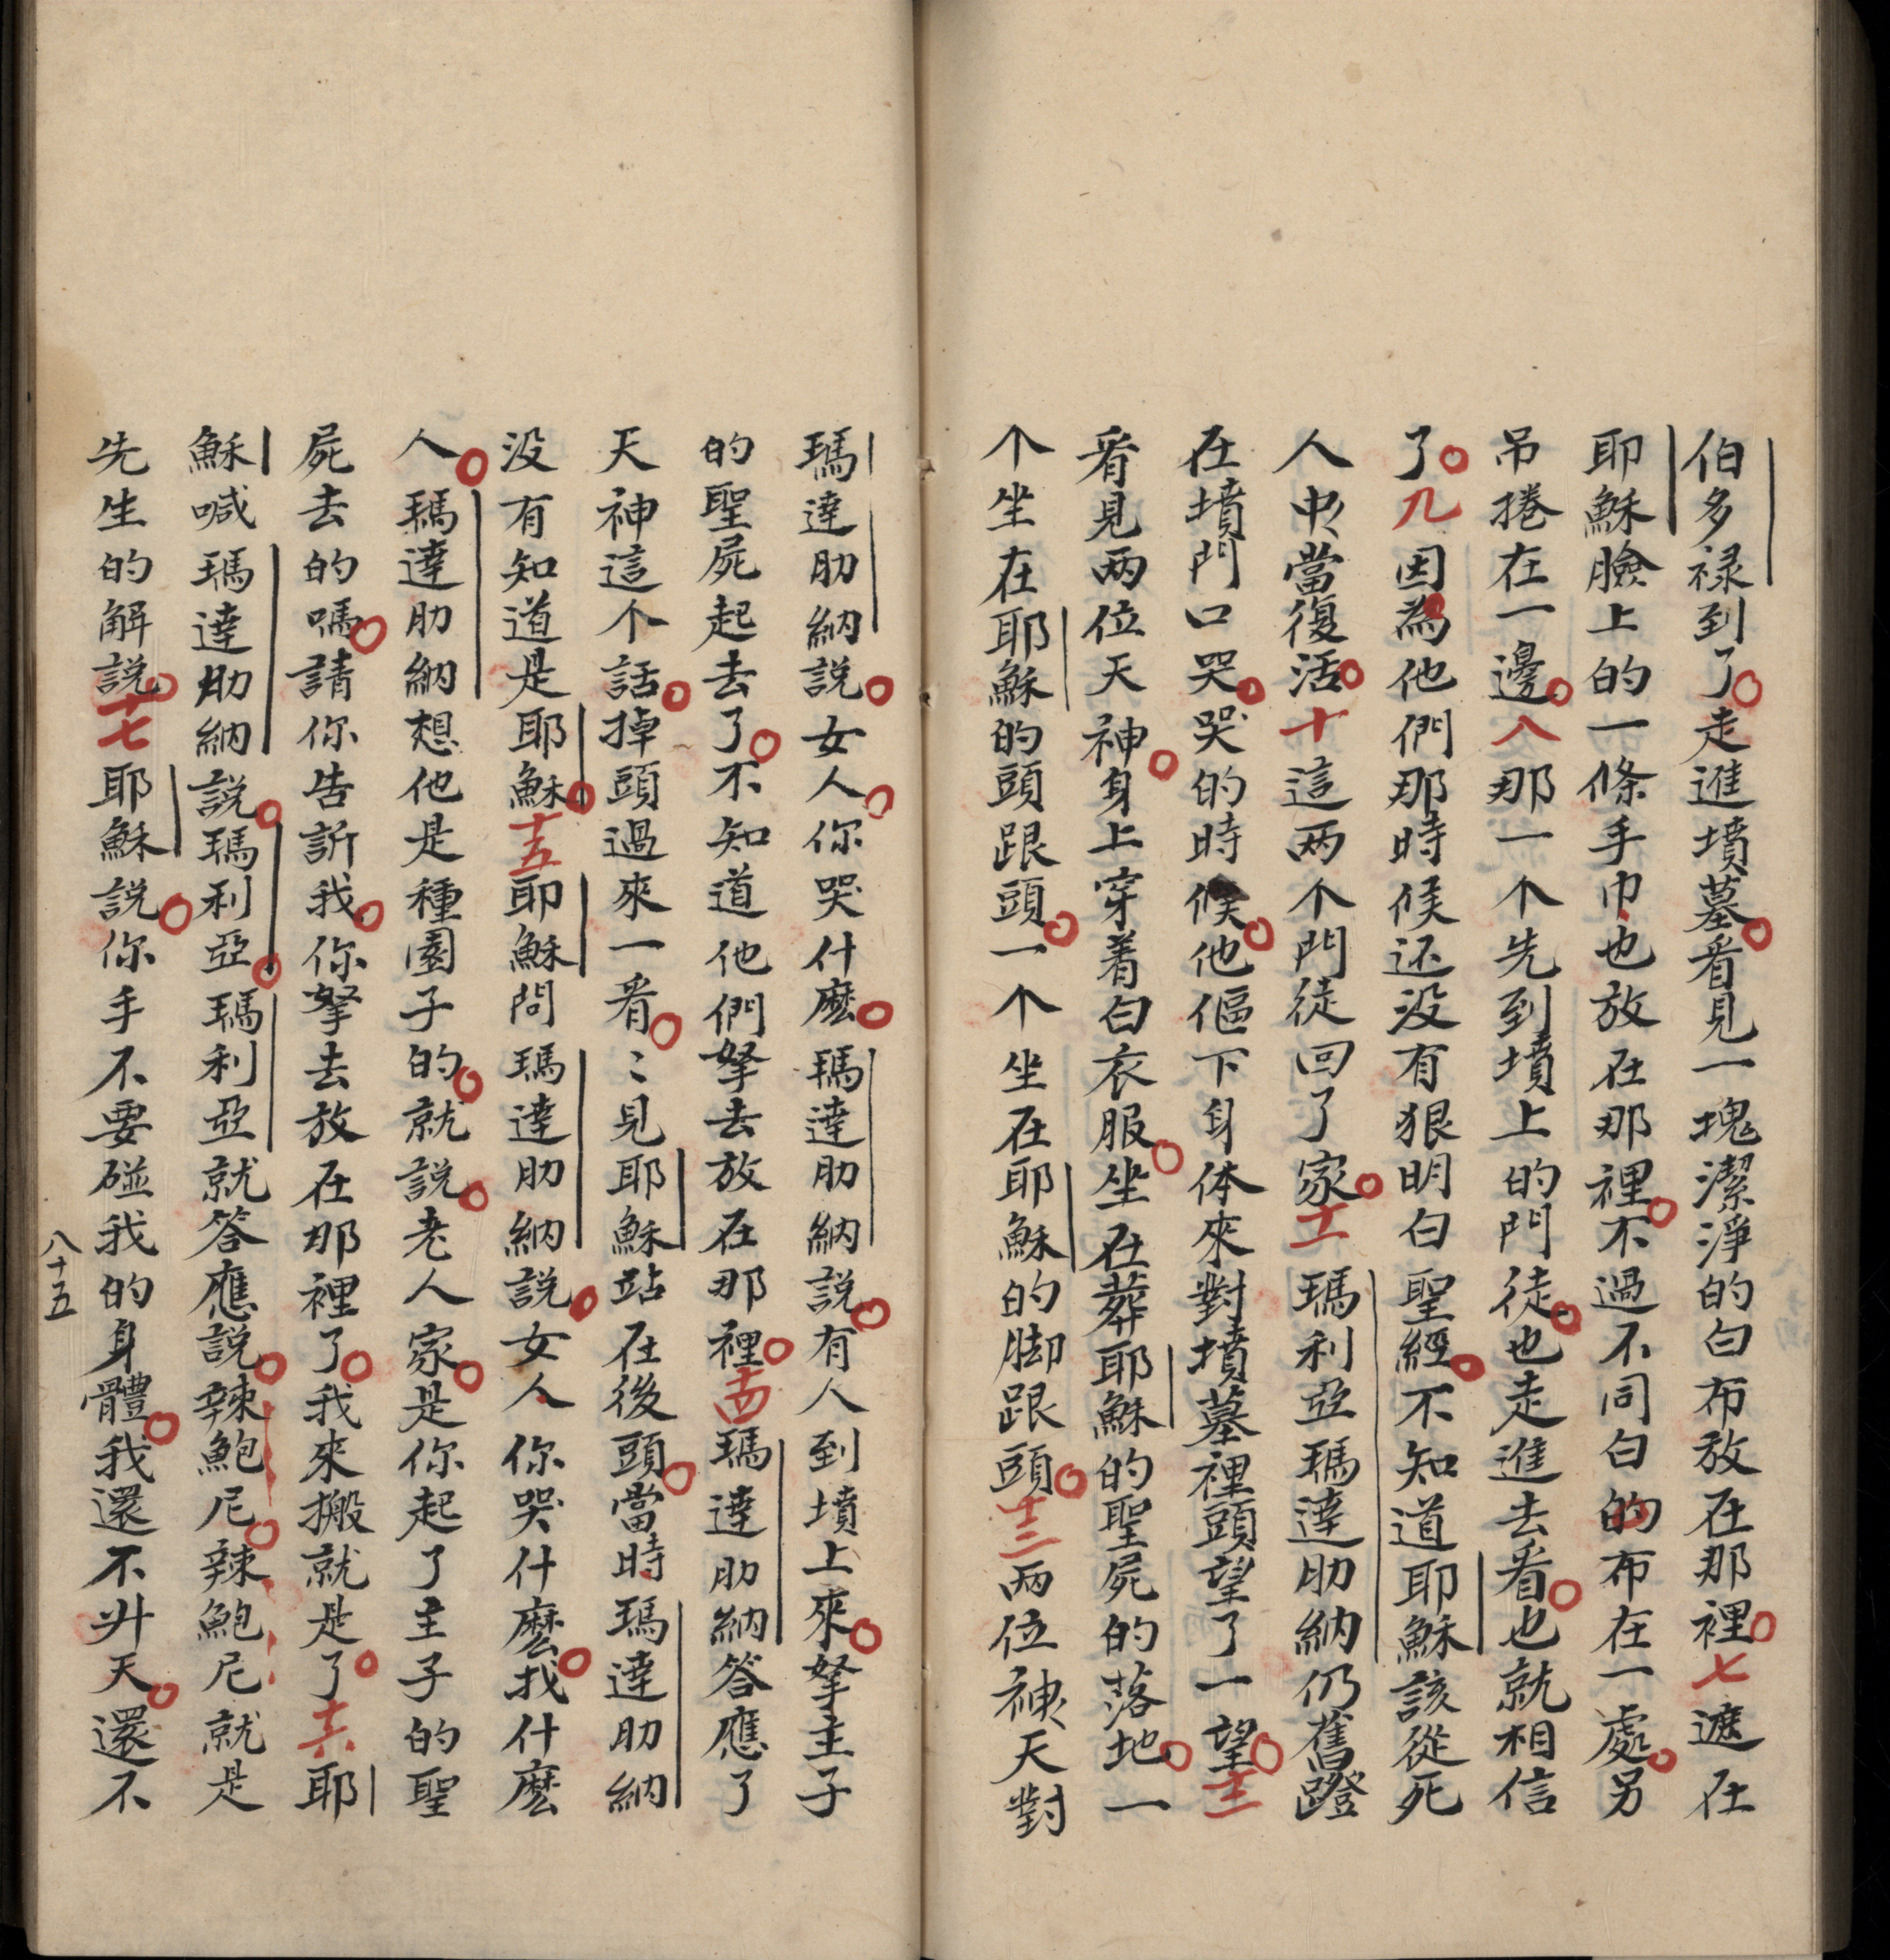 伯多禄到了走進墳墓看見一塊潔淨的白布放在那裡七遮在
耶穌臉上的一條手巾也放在那裡不過不同白的布在一處另
吊捲在一邊八那一个先到墳上的門徒也走進去看也就相信
了九因為他們那時候还没有狠明白聖經不知道耶穌該從死
人中當復活十這两个門徒回了家十一瑪利亞瑪達肋納仍舊蹬
在墳門口哭哭的時候他傴下身体來對墳墓裡頭望了一望十二
看見两位天神身上穿着白衣服坐在葬耶穌的聖屍的落地一
个坐在耶穌的頭跟頭一个坐在耶穌的脚跟頭十三两位神天對
瑪達肋納説女人你哭什麽瑪達肋納説有人到墳上來拏主子
的聖屍起去了不知道他們拏去放在那裡十四瑪達肋納答應了
天神這个話掉頭過來一看〻見耶穌站在後頭當時瑪達肋納
没有知道是耶穌十五耶穌問瑪達肋納説女人你哭什麽找什麽
人瑪達肋納想他是種園子的就説老人家是你起了主子的聖
屍去的嗎請你告訴我你拏去放在那裡了我來搬就是了十六耶
穌喊瑪達肋納説瑪利亞瑪利亞就答應説辣鮑尼辣鮑尼就是
先生的解説十七耶穌説你手不要碰我的身體我還不升天還不
八十五